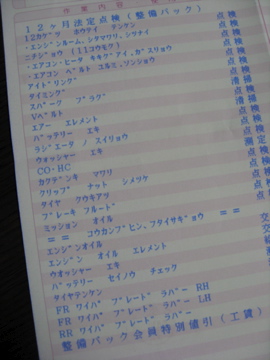 作業内容
12ヶ月法定点検(整備パック)
12カゲツ ホウテイ テンケン 点検
・エンジンルーム、シタマワリ、シツナイ 点検
ニチジョウ (11コウモク) 点検
・エアコン・ヒータ キキグアイ、ガスリョウ 点検
・エアコン ベルト ユルミ、ソンショウ 点検
アイドリング 点検
タイミング 点検
スパーク プラグ 清掃
Vベルト 点検
エアー エレメント 清掃
バッテリー エキ 点検
ラジエータ ノ スイリョウ 点検
ウォッシャー エキ 点検
CO・HC 測定
カクデンキ マワリ 点検
クリップ ナット シメツケ 点検
タイヤ クウキアツ 点検
ブレーキ フルード 点検
ミッション オイル 点検
== コウカンブヒン、フタイサギョウ ==
エンジンオイル 交
エンジン オイル エレメント
ウオッシャー エキ
バッテリー セイノウ チェック
タイヤテンケン 点
FR ワイパ ブレード ラバー RH
FR ワイパ ブレード ラバー LH
RR ワイパ ブレード ラバー
整備パック会員特別値引(工賃)